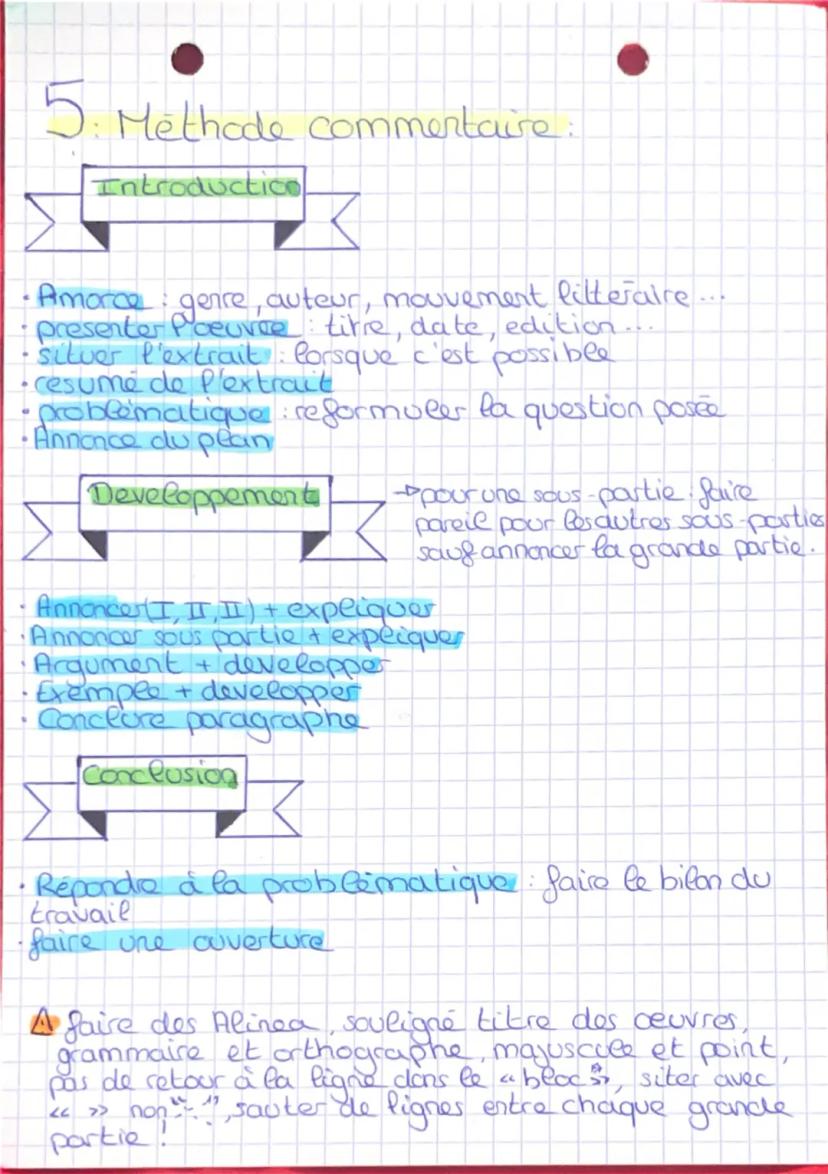 5: Méthode commentaire:
Introduction
· Amorce : genre, auteur, mouvement litteraire...
· presenter l'oeuvre : titre, date, edition...
· situer l'extrait : lorsque c'est possible
· resumé de l'extrait
· problématique : reformuler la question posée
· Annonce du plan
Developpement
→ pour une sous-partie : faire
pareil pour les autres sous-parties
sauf annoncer la grande partie.
· Annoncer (I, II, II) + expliquer
· Annoncer sous partie + expliquer
· Argument + developper
· Exemple + developper
· Conclure paragraphe
Conclusion
· Répondre à la problématique : faire le bilan du
travail
· faire une ouverture
⚠ faire des Alinea, souligné titre des œuvres,
grammaire et orthographe, majuscule et point,
pas de retour à la ligne dans le « bloc », siter avec
« » non "-", sauter de lignes entre chaque grande
partie !